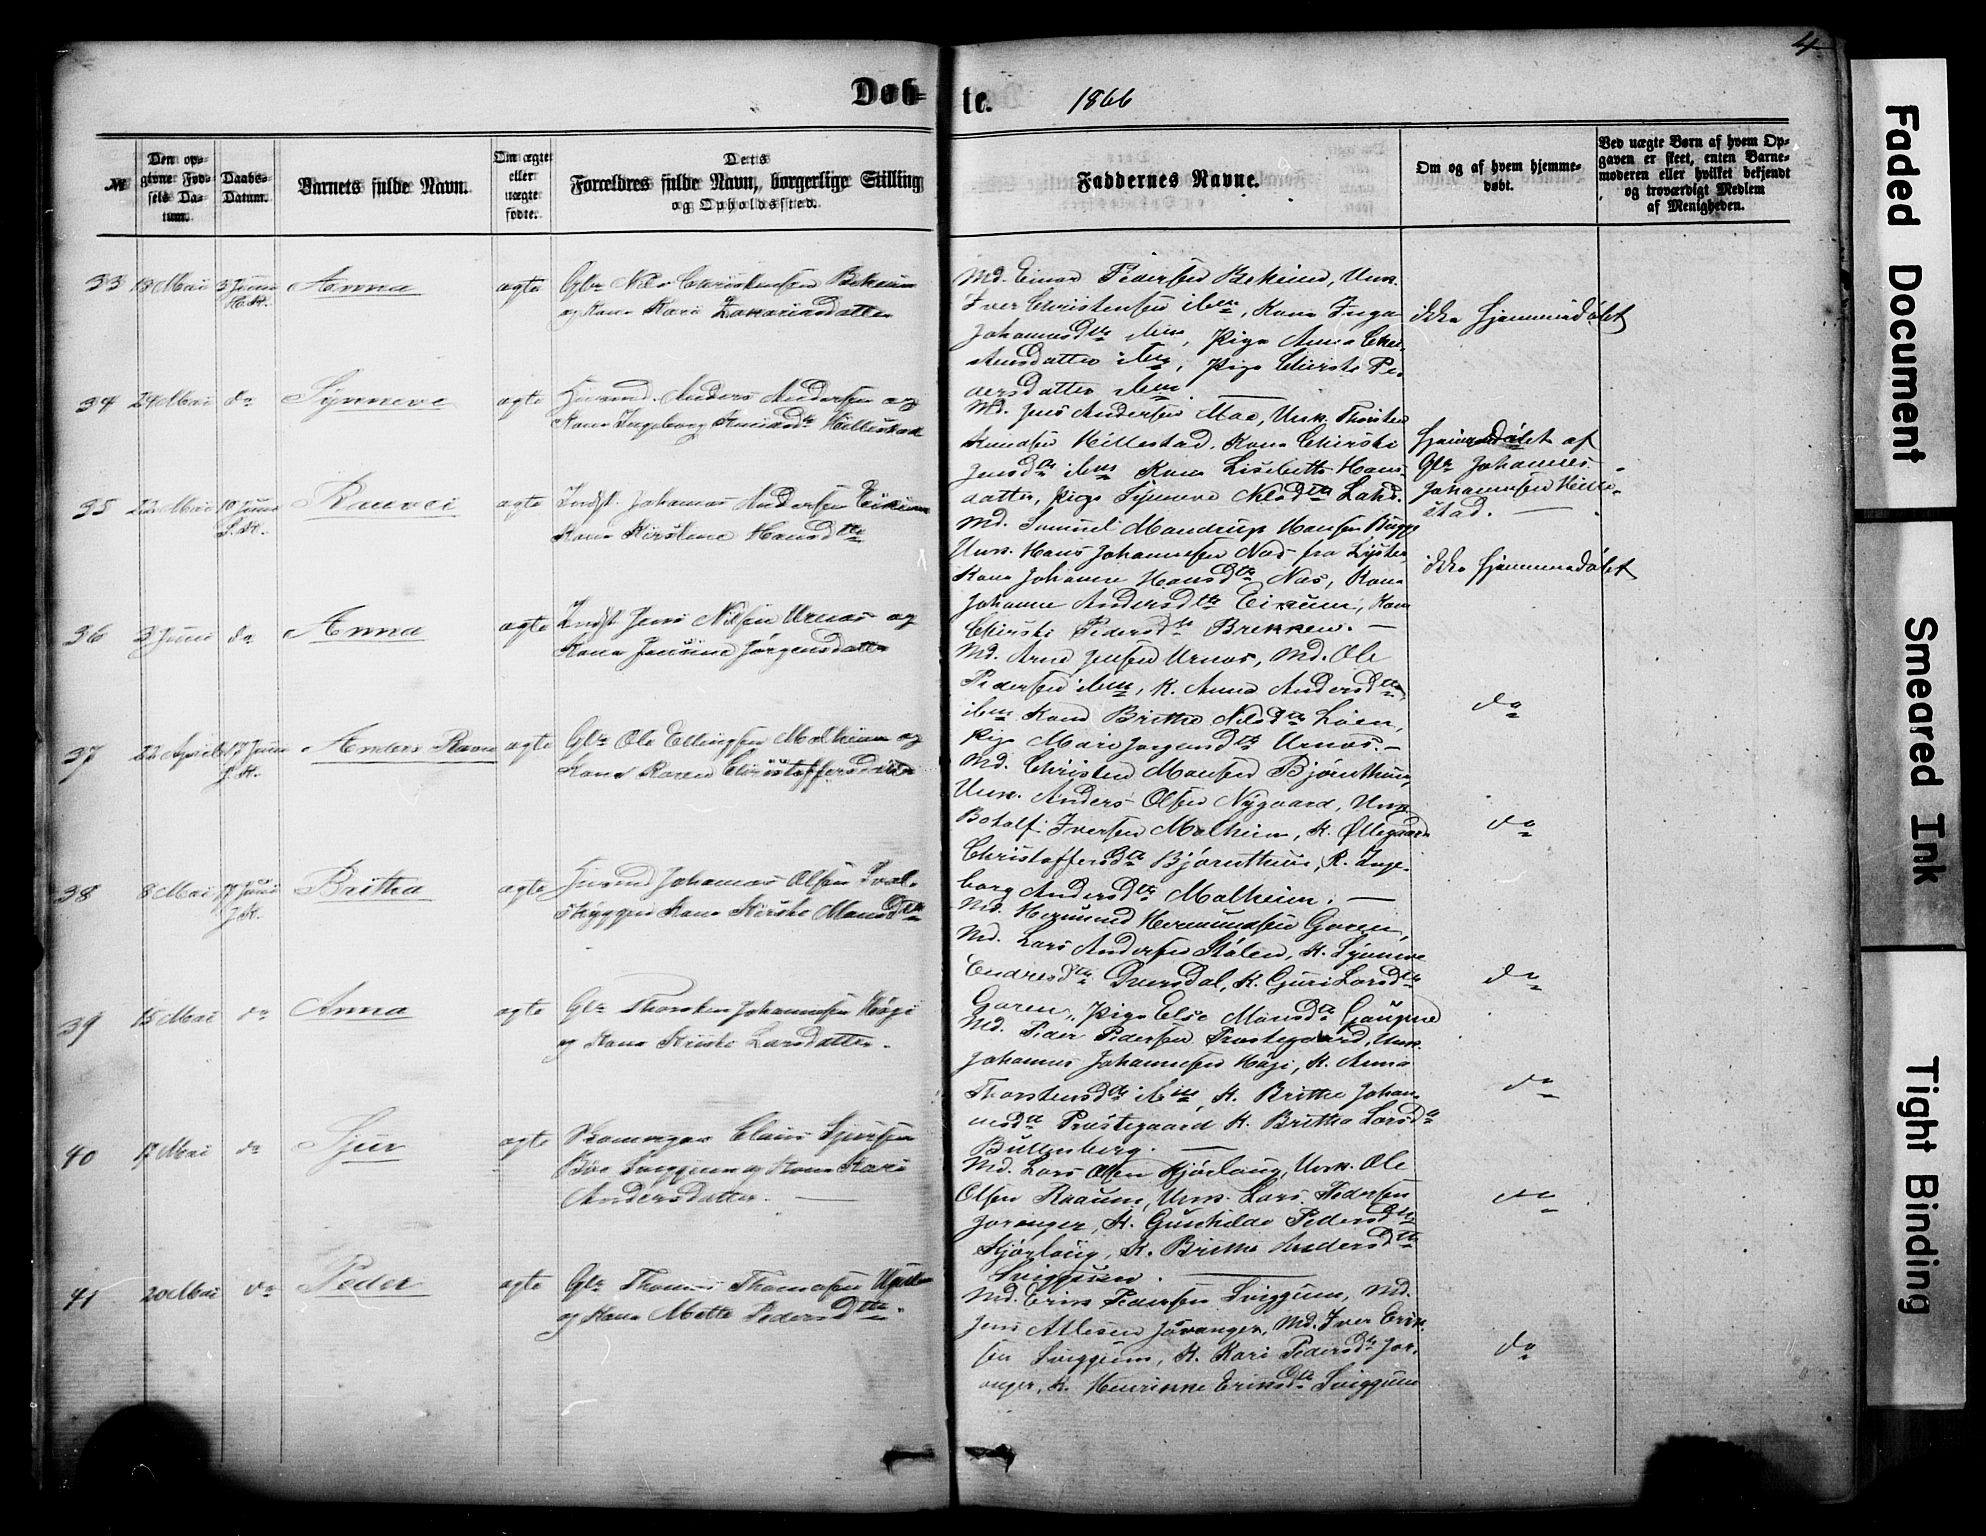 4
Døb-te. 1866
№
Den opgivne Fødsels Datum.
Daabs-Datum.
Barnets fulde Navn.
Om ægte eller uægte fødte.
Forældres fulde Navn, borgerlige Stilling og Opholdssted.
Faddernes Navne.
Om og af hvem hjemmedøbt.
Ved uægte Børn af hvem Opgaven er skeet, enten Barnemoderen eller hvilket bekjendt og troværdigt Medlem af Menigheden.
33 18 Mai 3 Juni H.K. Anna ægte Gbr Nils Christensen
og Kone Kari Zakariasdatter
Md. Einar Pedersen Unk.
Iver Christensen ibm, Kone Inga
Johannesdtr ibm, Pige Anna Chri-
stensdatter ibm, Pige Chirsti Pe-
dersdatter ibm.
ikke hjemmedøbt
34 24 Mai do Synneve ægte Husmd. Anders Andersen og
Kone Ingeborg Knudsdtr Hillestad
Md. Jens Andersen Moe, Unk. Thorsten
Knudsen Hillestad, Kone Chirsti
Jensdtr ibm Kone Lisebeth Hans-
datter, Pige Synneve Nilsdtr
hjemmedøbt af
Gbr Johannes
Johannesen Hille-
stad.
35 22 Mai 10 Juni S.K. Ranvei ægte Indst. Johannes Andersen Eikum
Kone Kirstine Hansdtr
Md. Samuel Mandrup Hansen Bugge
Unk. Hans Johannesen Næs fra Lyster,
Kone Johanne Hansdtr Næs, Kone
Johanne Andersdtr Eikum, Kone
Chirsti Pedersdtr Brekken.
ikke hjemmedøbt
36 3 Juni do Anna ægte Indst. Jens Nilsen Urnæs og
Kone Jørgensdatter
Md. Arne Jensen Urnæs, Md. Ole
Pedersen ibm, K. Anna Andersdtr
ibm Kone Brithe Nilsdtr Løen,
Pige Mari Jørgensdtr Urnæs.
do
37 22 April 17 Juni J.K. Anders Ravn ægte Gbr Ole Ellingsen Molheim og
Kone Karen Christoffersdatter
Md. Christen Monsen Bjørnthun,
Unk. Anders Olsen Nygaard, Unk
Botolf Iversen Molheim, K. Øllegaard
Christoffersdtr Bjørnthun, K. Inge-
borg Andersdtr Molheim.
do
38 8 Mai 17 Juni J.K. Britha ægte Husmd Johannes Olsen
Kone Kirsti Monsdtr
Md. Hermund Hermundsen Garen,
Md. Lars Andersen Stølen, K. Synneve
Endresdtr Dversdal, K. Guri Larsdtr
Garen, Pige Else Monsdtr Gaupne
do
39 15 Mai do Anna ægte Gbr Thorsten Johannesen Høgi
og Kone Kristi Larsdatter.
Md. Peder Pedersen Præstegaard, Unk.
Johannes Johannesen Høgi, K. Anna
Thorstensdtr ibm, K. Brithe Johan-
nesdtr Præstegaard K. Britha Larsdtr
do
40 17 Mai do Sjur ægte Skomager Claus Sjursen
Sviggum og Kone Kari
Andersdatter.
Md. Lars Olsen Kjørlaug, Unk. Ole
Olsen Raaum, Unk. Lars Pedersen
Joranger, K. Gunhilde Pedersdtr
Kjørlaug, K. Brithe Andersdtr
Sviggum.
do
41 20 Mai do Peder ægte Gbr Thomas Thomasen
og Kone Mette Pedersdtr.
Md. Erik Pedersen Sviggum, Md.
Jens Atlesen Joranger, Md. Iver Erik-
sen Sviggum, K. Kari Pedersdtr Jor-
anger, K. Henrikke Eriksdtr Sviggum
do
Faded Document
Smeared Ink
Tight Binding